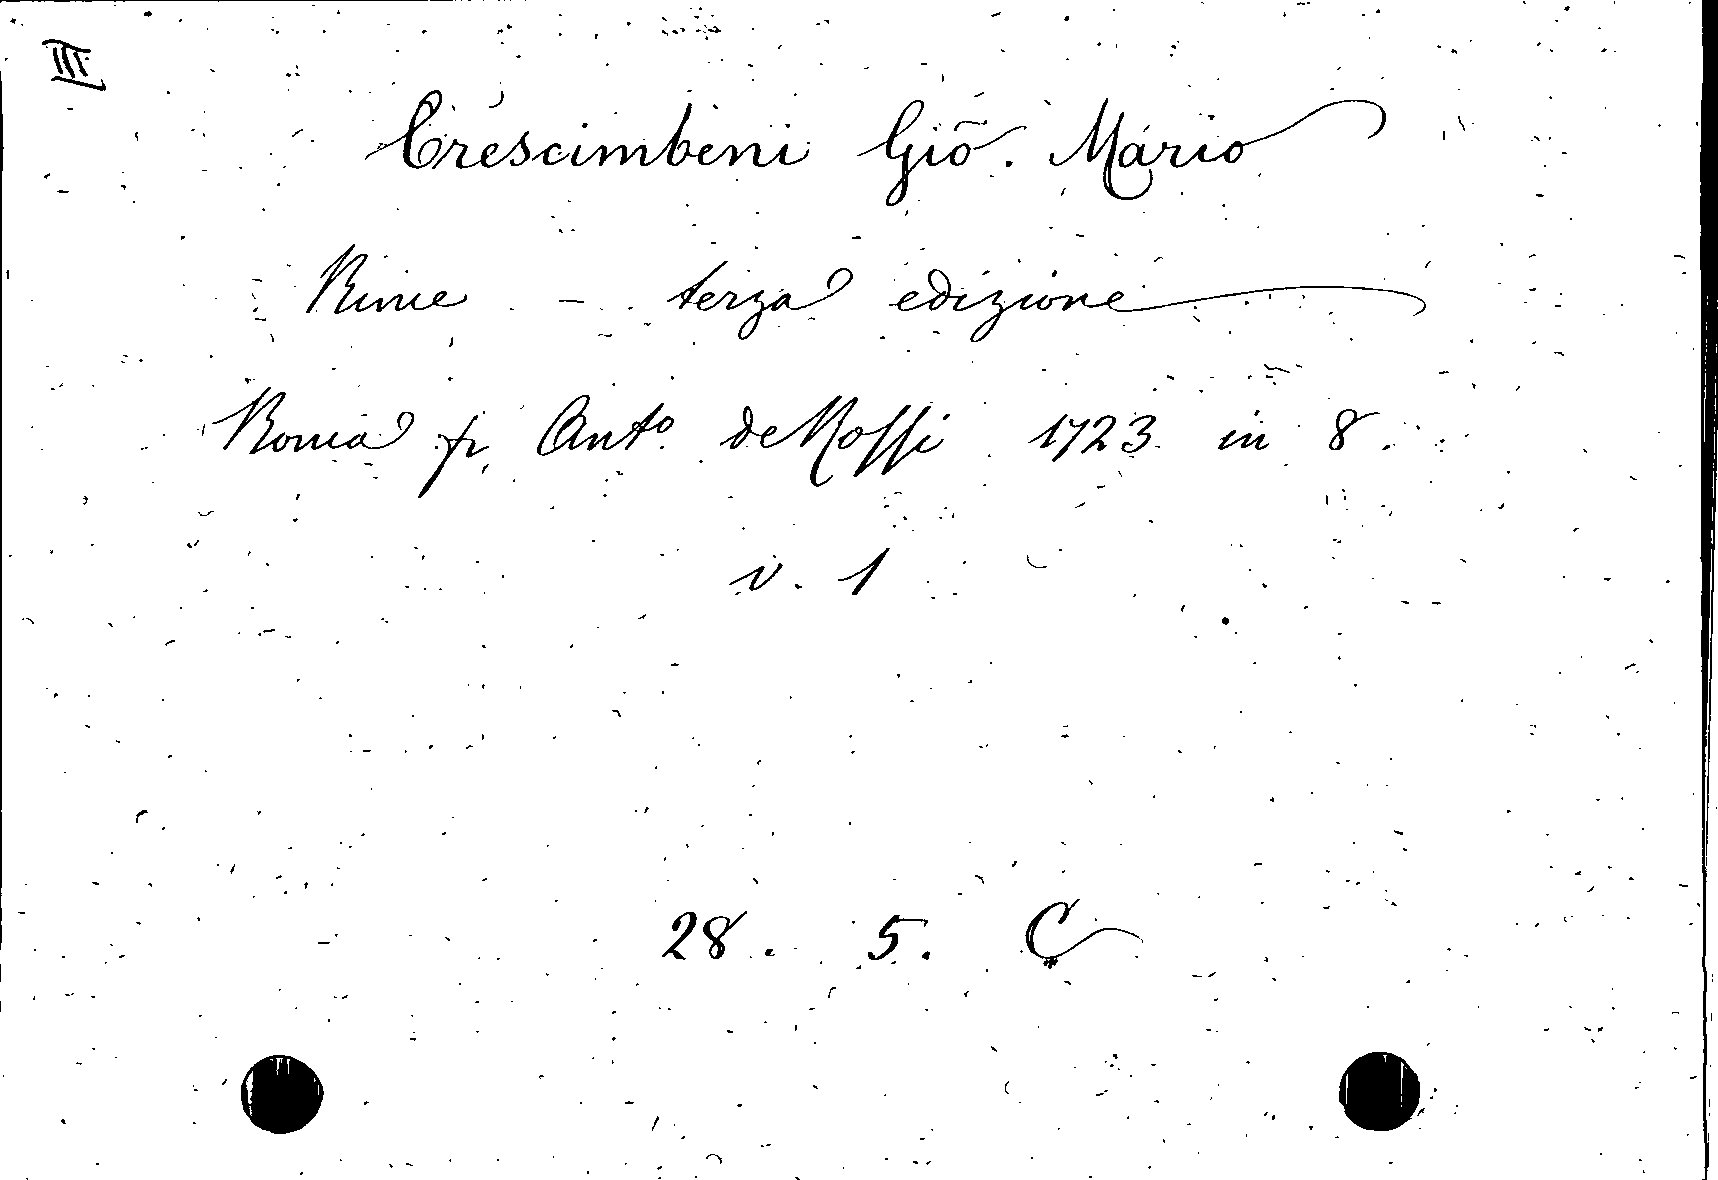 III
Crescimbeni Giõ. Mario
Rime - terza edizione
Roma pr. Ant.º de Rossi 1723 in 8.
v. 1
28. 5. C